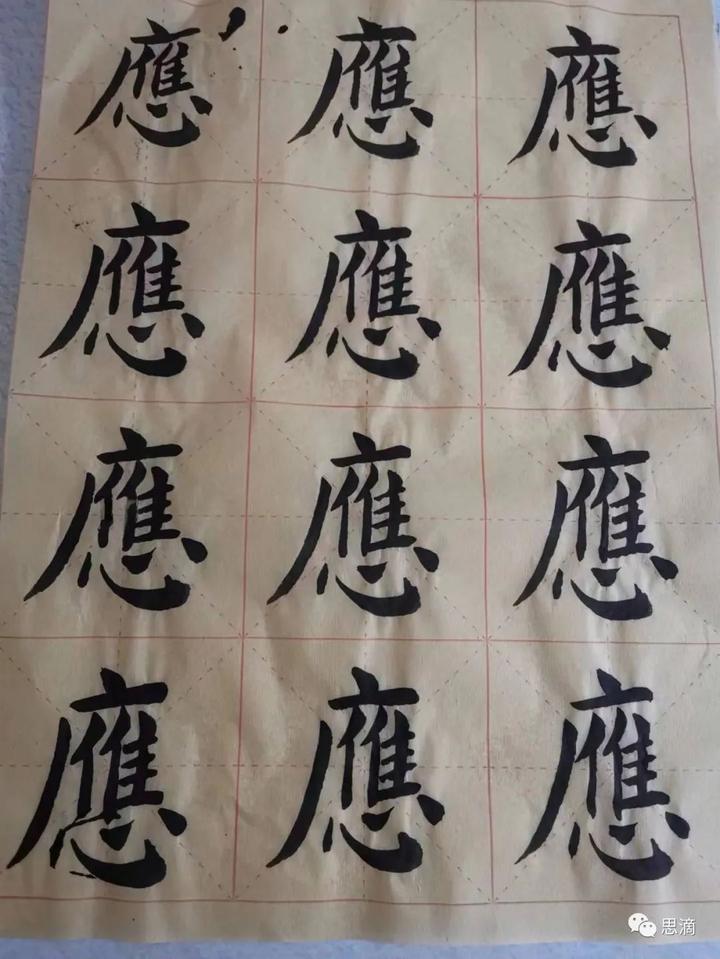 應應應
應應應
應應應
應應應
思滴